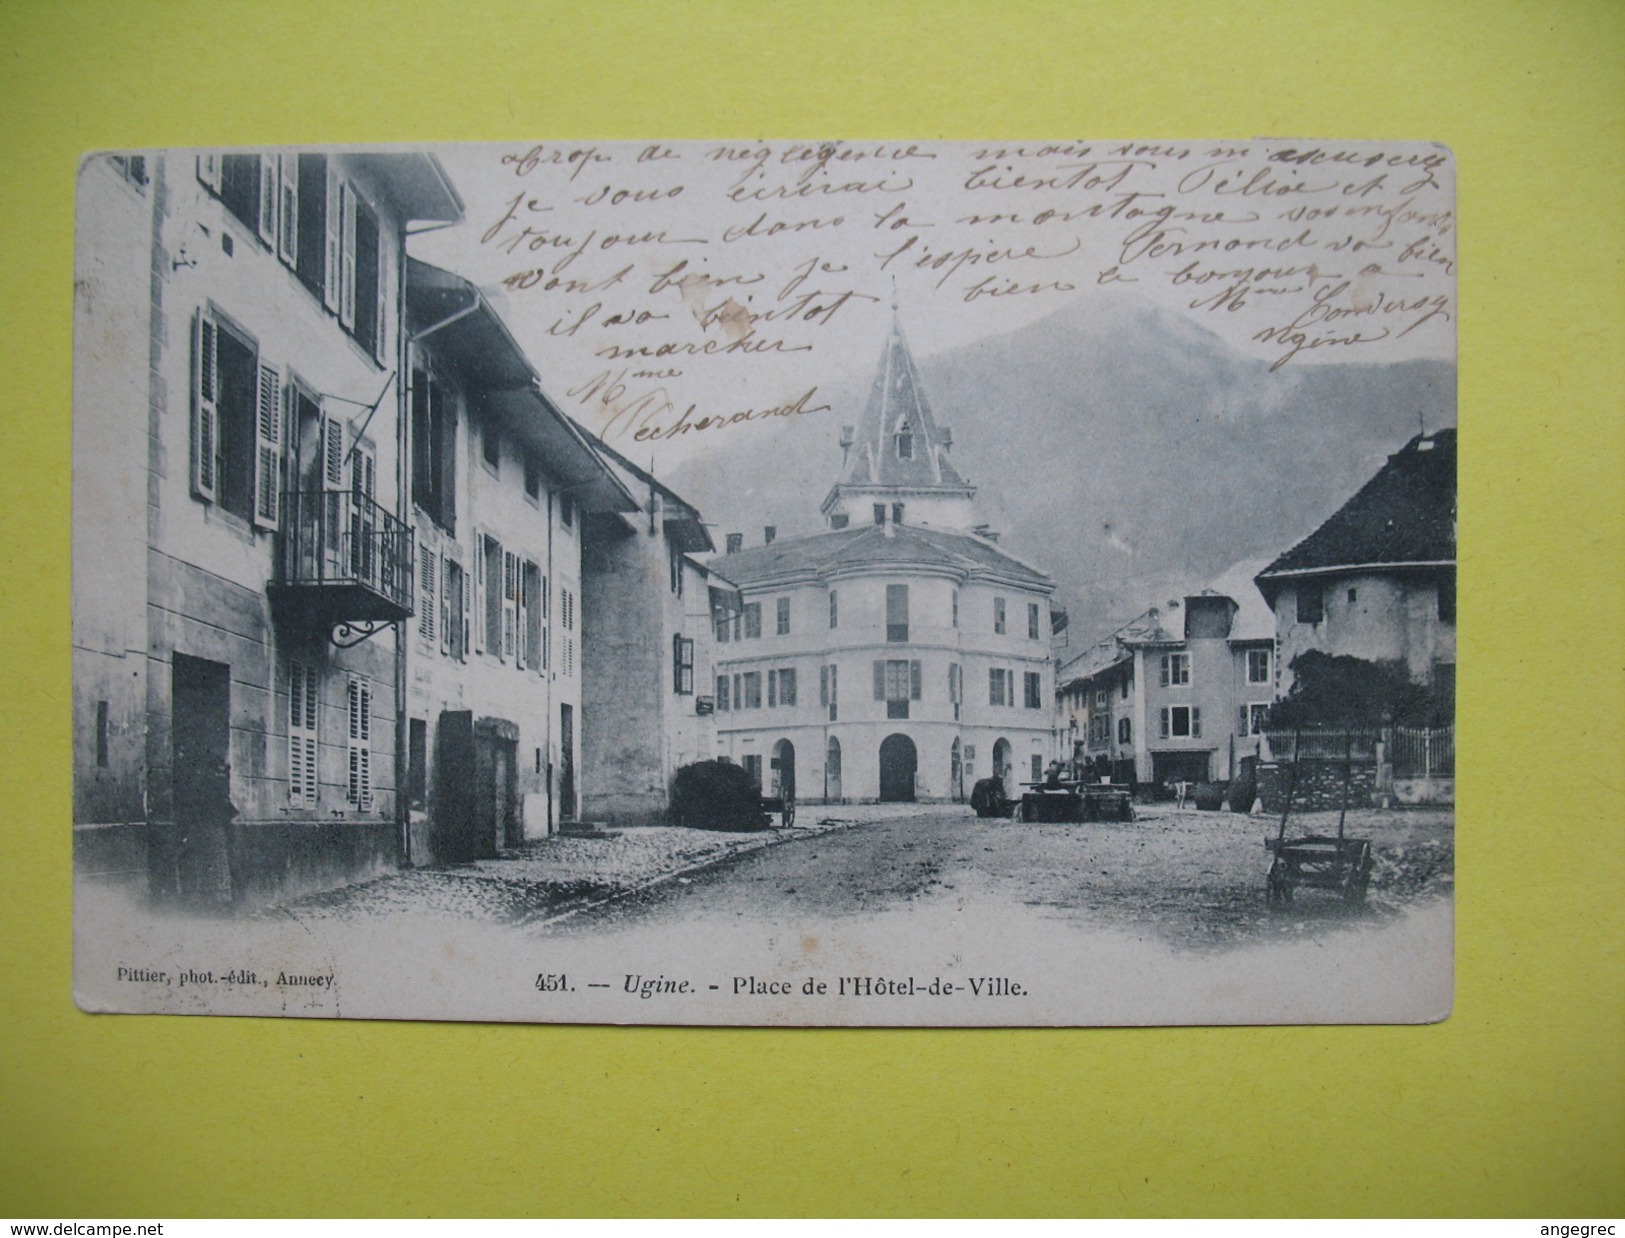 trop de négligence mais vous m'excuserez
je vous écrirai bientot Félixe et
toujour dans la montagne vos enfants
vont bien je l'espère Fernand va bien
il va bientot bien le bonjour a
marcher Mme
Mme Ugine
Pecherand
Pittier, phot.-édit., Annecy.
451. — Ugine. - Place de l'Hôtel-de-Ville.
www.delcampe.net
angegrec